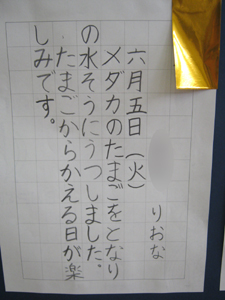 六月五日(火)
りおな
メダカのたまごをとなり
の水そうにうつしました。
たまごからかえる日が楽
しみです。